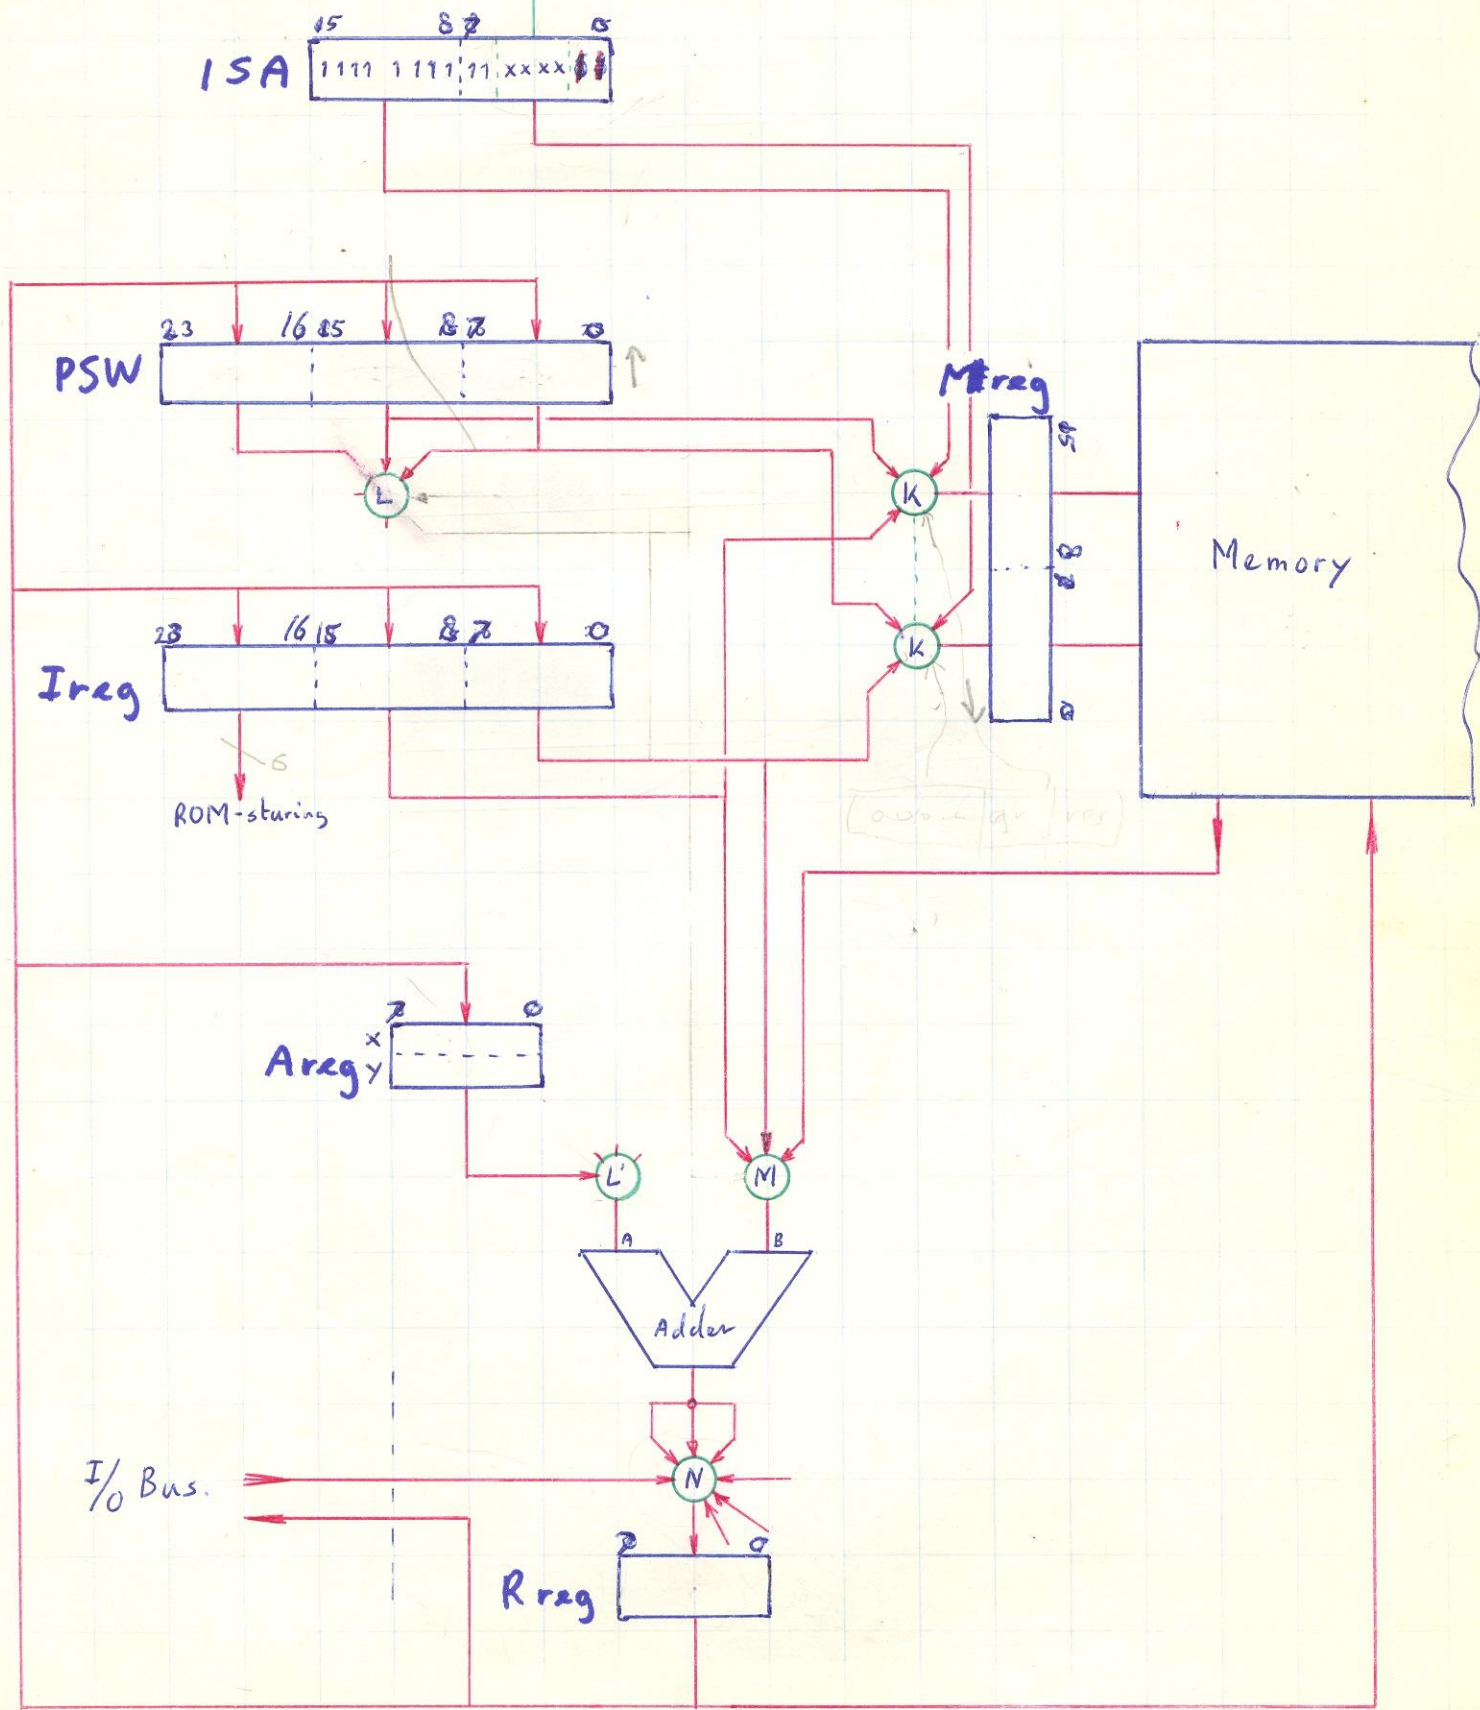 15 8 7 0
ISA 1111 1111 11 xxxx
23 16 15 8 7 0
PSW
Mreg
15
L
K
8
7
Memory
K
23 16 15 8 7 0
Ireg
0
6
ROM-sturing
7 0
Areg
X
Y
L'
M
A
B
Adder
I/O Bus.
N
7 0
Rreg